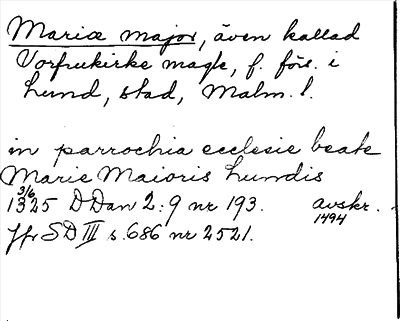 Mariæ major, även kallad
Vorfrukirke magle, f. förs. i
Lund, stad, Malm. l.
in parrochia ecclesie beate
Marie Maioris Lundis
3/6
1325 DDan 2:9 nr 193. avskr.
1494
Jfr SD III s. 686 nr 2521.